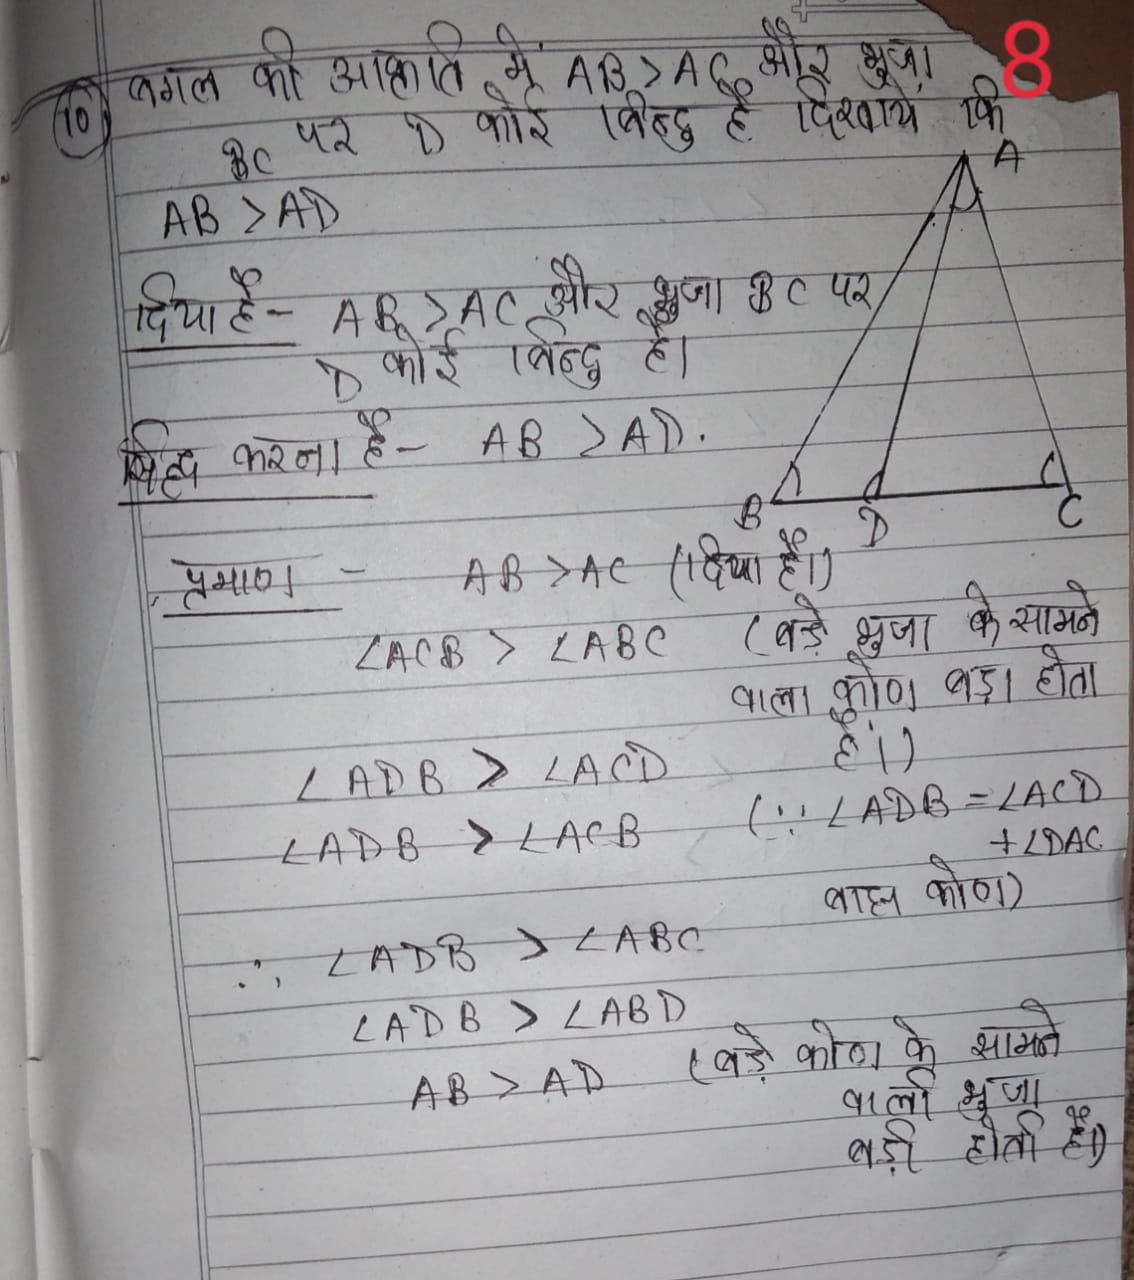 8
(10) बगल की आकृति में AB > AC और भुजा
BC पर D कोई बिन्दु है दिखाये कि
AB > AD
दिया है - AB > AC और भुजा BC पर
D कोई बिन्दु है।
सिद्ध करना है - AB > AD.
A
B D C
प्रमाण - AB > AC (दिया है।)
∠ACB > ∠ABC (बड़े भुजा के सामने
वाला कोण बड़ा होता
है।)
∠ADB > ∠ACD
∠ADB > ∠ACB (∵ ∠ADB = ∠ACD
+ ∠DAC
बाह्य कोण)
∴ ∠ADB > ∠ABC
∠ADB > ∠ABD
AB > AD (बड़े कोण के सामने
वाली भुजा
बड़ी होती है।)